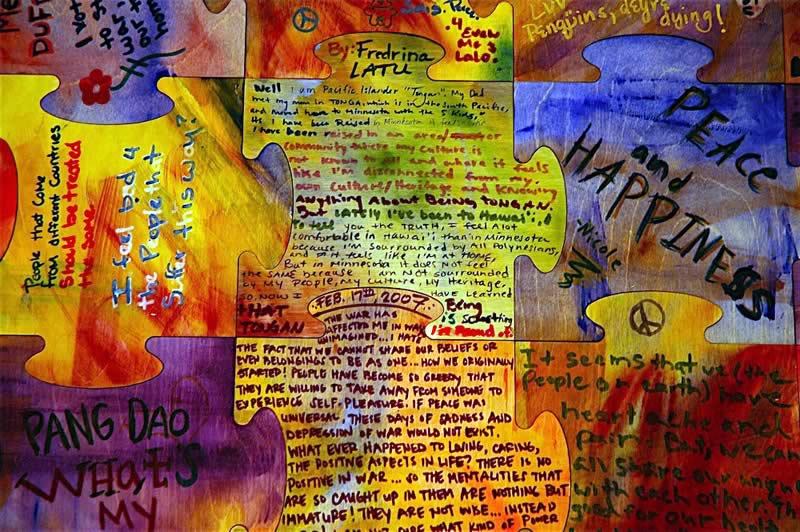 ME
DUF
I vot
for
our
wor
Luv
Penguins, deyre
dying!
4
Even
Me &
Lalo.
By: Fredrina
LATU
Well I am Pacific Islander "Tongan". My Dad
met my mom in TONGA, which is in the South Pacific,
and moved here to Minnesota with the 5 kids,
As I have been Raised in Minnesota
I have been raised in an area/
community where my culture is
not known to all and where it feels
like I'm disconnected from my
own culture/Heritage and knowing
Anything About BEING TONGAN.
But LATELY I've been to Hawai'i,
To tell you the TRUTH, I feel A lot
comfortable in Hawai'i, than in Minnesota
because I'm sourrounded by All Polynesians,
and it feels like I'm at HOME,
But in Minnesota it Does Not feel
the SAME because I am Not sourrounded
by My People, My culture, My Heritage,
So, NOW I HAVE Learned
tHAT Being
TONGAN is something
I'm Proud of.
People that come
from different countries
Should be treated
the same.
I feel bad 4
the People tht
Suffer this way?
PEACE
and
HAPPINESS
-Nicole
FEB. 17th 2007
THE WAR HAS
AFFECTED ME IN WAYS
UNIMAGINED... I HATE
THE FACT THAT WE CANNOT SHARE OUR BELIEFS OR
EVEN BELONGINGS TO BE AS ONE... HOW WE ORIGINALLY
STARTED! PEOPLE HAVE BECOME SO GREEDY THAT
THEY ARE WILLING TO TAKE AWAY FROM SOMEONE TO
EXPERIENCE SELF-PLEASURE. IF PEACE WAS
UNIVERSAL, THESE DAYS OF SADNESS AND
DEPRESSION OF WAR WOULD NOT EXIST.
WHAT EVER HAPPENED TO LOVING, CARING,
THE POSITIVE ASPECTS IN LIFE? THERE IS NO
POSITIVE IN WAR... SO THE MENTALITIES THAT
ARE SO CAUGHT UP IN THEM ARE NOTHING BUT
IMMATURE! THEY ARE NOT WISE... INSTEAD
SURE WHAT KIND OF POWER
PANG DAO
WHAt's
MY
It seems that we (the
People on earth) have
heart ache and
pain. But, we can
all share our unique
with each other. Th
good for our